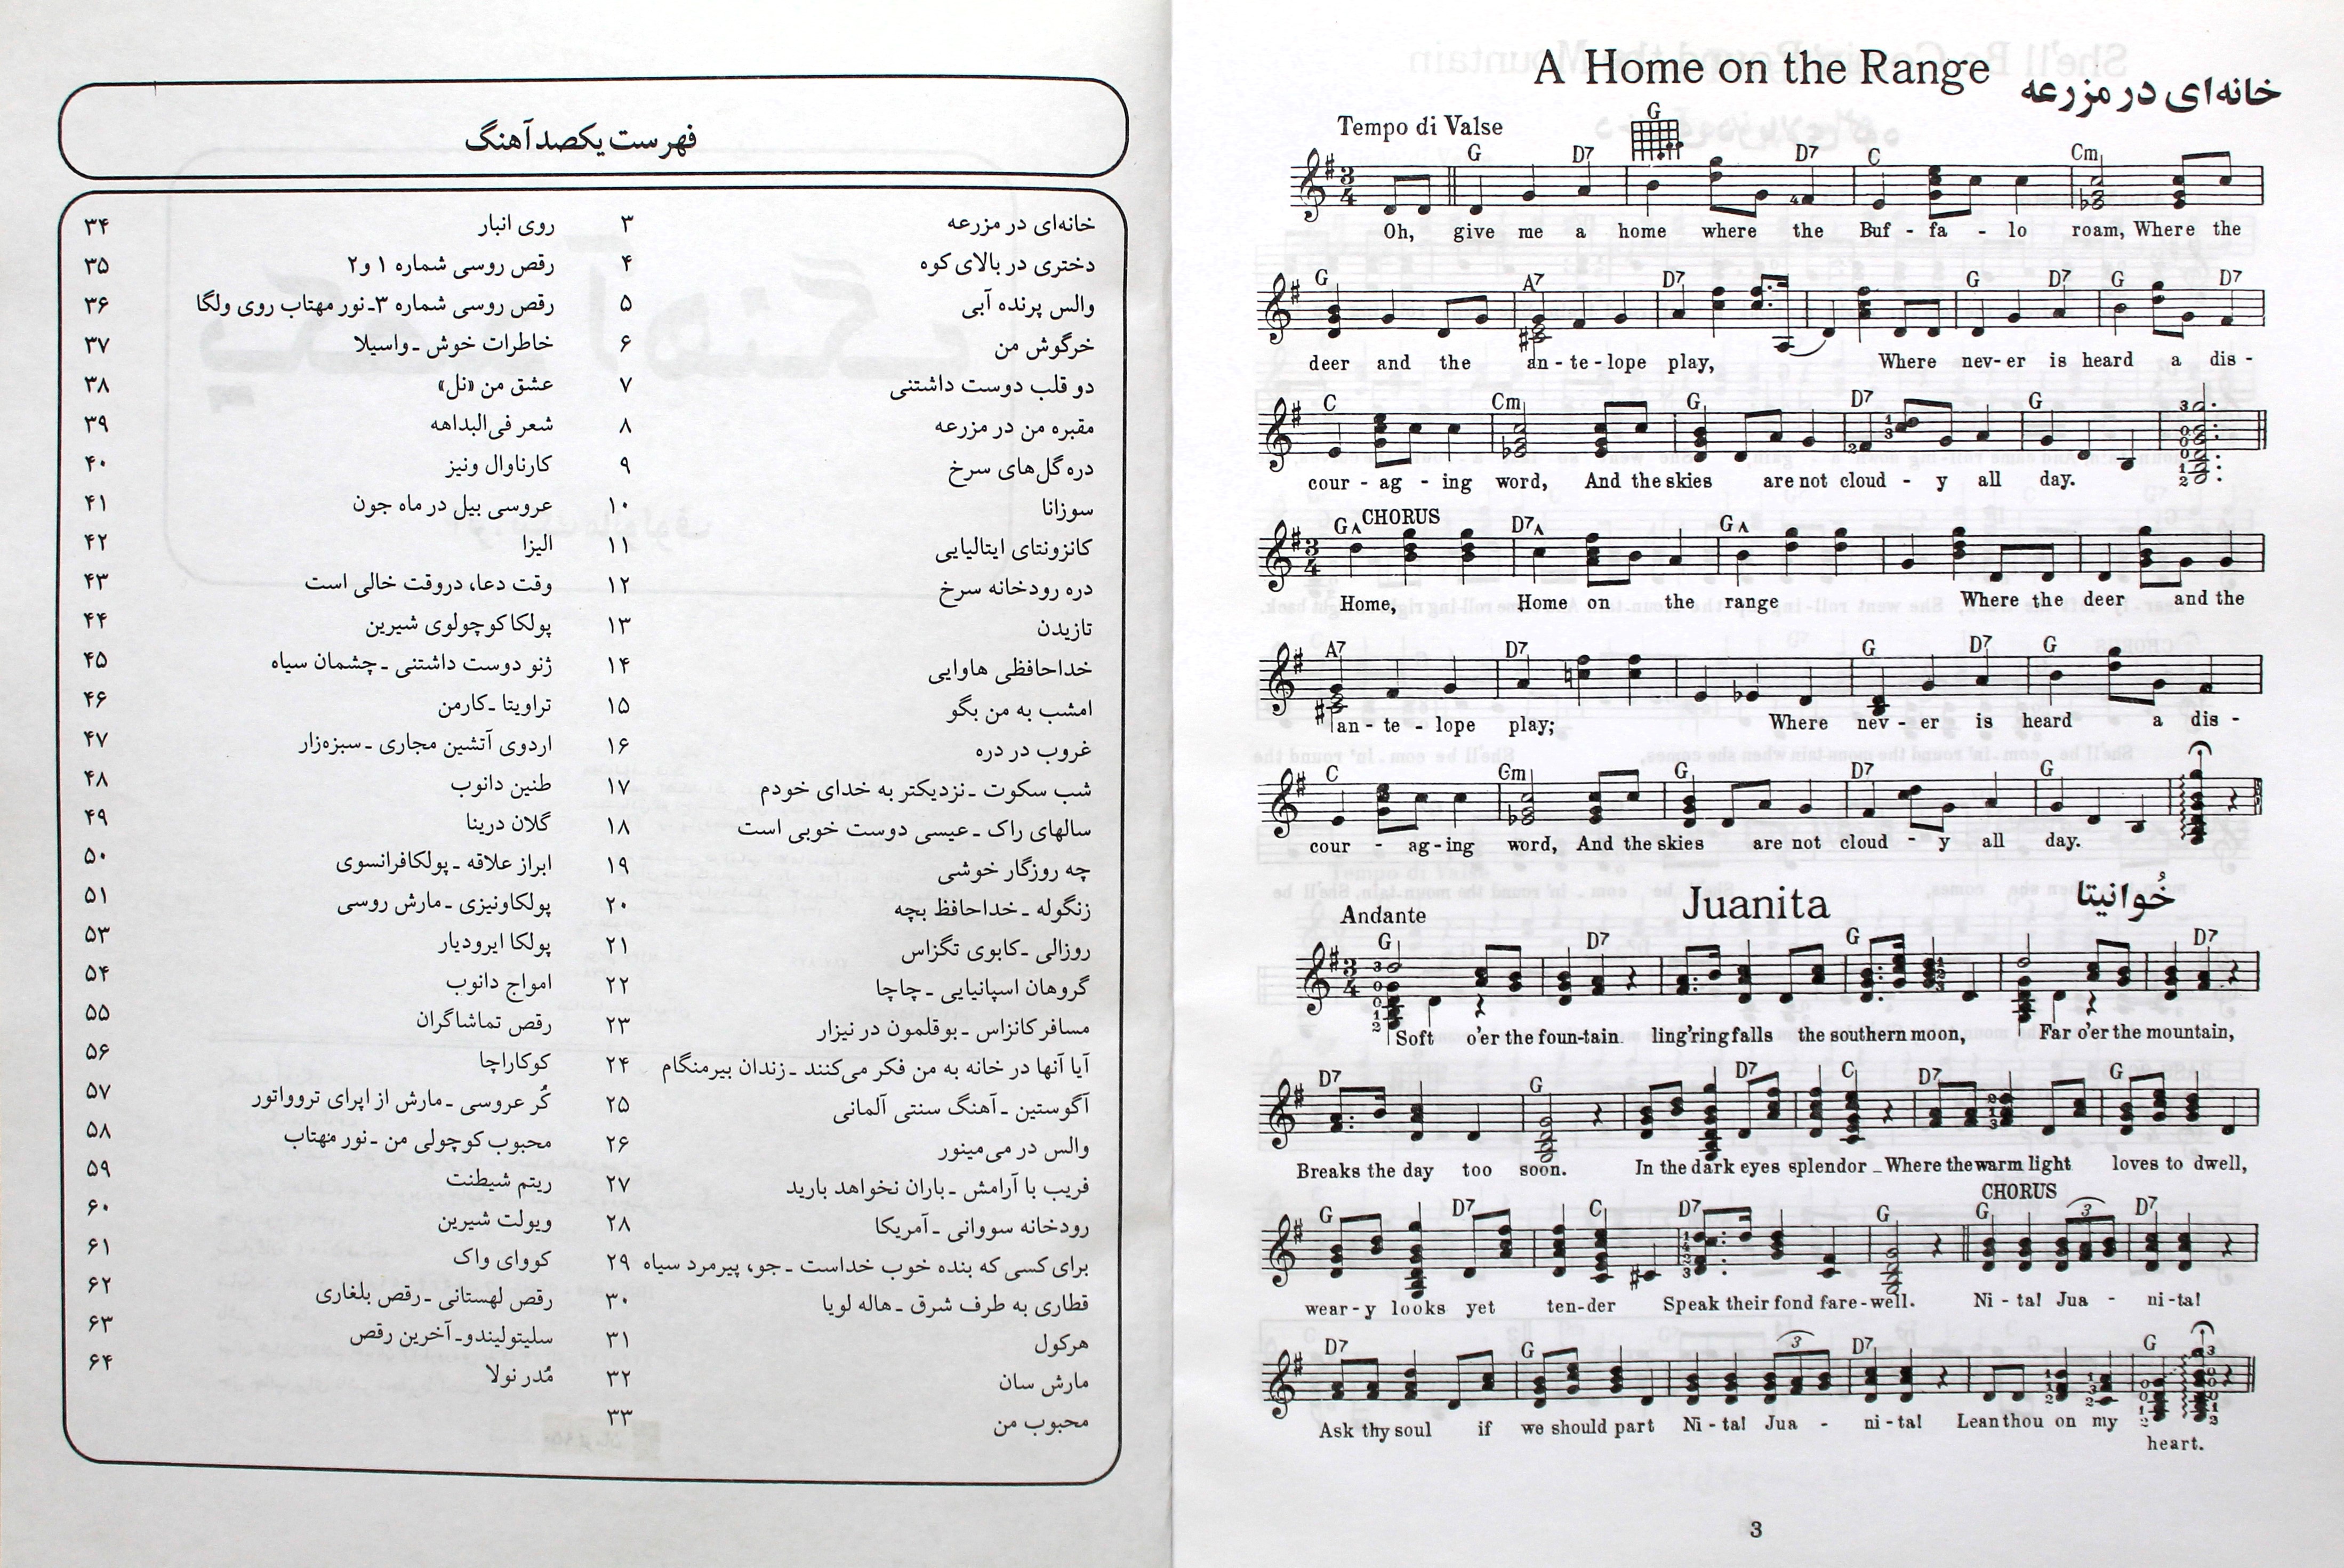 فهرست یکصد آهنگ
خانه‌ای در مزرعه ۳
دختری در بالای کوه ۴
والس پرنده آبی ۵
خرگوش من ۶
دو قلب دوست داشتنی ۷
مقبره من در مزرعه ۸
دره گل‌های سرخ ۹
سوزانا ۱۰
کانزونتای ایتالیایی ۱۱
دره رودخانه سرخ ۱۲
تازیدن ۱۳
خداحافظی هاوایی ۱۴
امشب به من بگو ۱۵
غروب در دره ۱۶
شب سکوت ـ نزدیکتر به خدای خودم ۱۷
سالهای راک ـ عیسی دوست خوبی است ۱۸
چه روزگار خوشی ۱۹
زنگوله ـ خداحافظ بچه ۲۰
روزالی ـ کابوی تگزاس ۲۱
گروهان اسپانیایی ـ چاچا ۲۲
مسافر کانزاس ـ بوقلمون در نیزار ۲۳
آیا آنها در خانه به من فکر می‌کنند ـ زندان بیرمنگام ۲۴
آگوستین ـ آهنگ سنتی آلمانی ۲۵
والس در می‌مینور ۲۶
فریب با آرامش ـ باران نخواهد بارید ۲۷
رودخانه سووانی ـ آمریکا ۲۸
برای کسی که بنده خوب خداست ـ جو، پیرمرد سیاه ۲۹
قطاری به طرف شرق ـ هاله لویا ۳۰
هرکول ۳۱
مارش سان ۳۲
محبوب من ۳۳
روی انبار ۳۴
رقص روسی شماره ۱ و ۲ ۳۵
رقص روسی شماره ۳ـ نور مهتاب روی ولگا ۳۶
خاطرات خوش ـ واسیلا ۳۷
عشق من «نل» ۳۸
شعر فی‌البداهه ۳۹
کارناوال ونیز ۴۰
عروسی بیل در ماه جون ۴۱
الیزا ۴۲
وقت دعا، دروقت خالی است ۴۳
پولکا کوچولوی شیرین ۴۴
ژنو دوست داشتنی ـ چشمان سیاه ۴۵
تراویتا ـ کارمن ۴۶
اردوی آتشین مجاری ـ سبزه‌زار ۴۷
طنین دانوب ۴۸
گلان درینا ۴۹
ابراز علاقه ـ پولکافرانسوی ۵۰
پولکاونیزی ـ مارش روسی ۵۱
پولکا ایرودیار ۵۳
امواج دانوب ۵۴
رقص تماشاگران ۵۵
کوکاراچا ۵۶
کُر عروسی ـ مارش از اپرای تروواتور ۵۷
محبوب کوچولی من ـ نور مهتاب ۵۸
ریتم شیطنت ۵۹
ویولت شیرین ۶۰
کووای واک ۶۱
رقص لهستانی ـ رقص بلغاری ۶۲
سلیتولیندو ـ آخرین رقص ۶۳
مُدر نولا ۶۴
A Home on the Range خانه‌ای در مزرعه
Tempo di Valse G
G D7 D7 C Cm
Oh, give me a home where the Buf - fa - lo roam, Where the
G A7 D7 G D7 G D7
deer and the an - te - lope play, Where nev - er is heard a dis -
C Cm G D7 G
cour - ag - ing word, And the skies are not cloud - y all day.
G CHORUS D7 G
Home, Home on the range Where the deer and the
A7 D7 G D7 G
an - te - lope play; Where nev - er is heard a dis -
C Cm G D7 G
cour - ag - ing word, And the skies are not cloud - y all day.
Juanita خُوانیتا
Andante
G D7 G D7
Soft o'er the foun-tain ling'ring falls the southern moon, Far o'er the mountain,
D7 G D7 C D7 G
Breaks the day too soon. In the dark eyes splendor Where the warm light loves to dwell,
CHORUS
G D7 C D7 G G D7
wear - y looks yet ten-der Speak their fond fare-well. Ni - ta! Jua - ni - ta!
D7 G D7 G
Ask thy soul if we should part Ni - ta! Jua - ni - ta! Lean thou on my
heart.
3